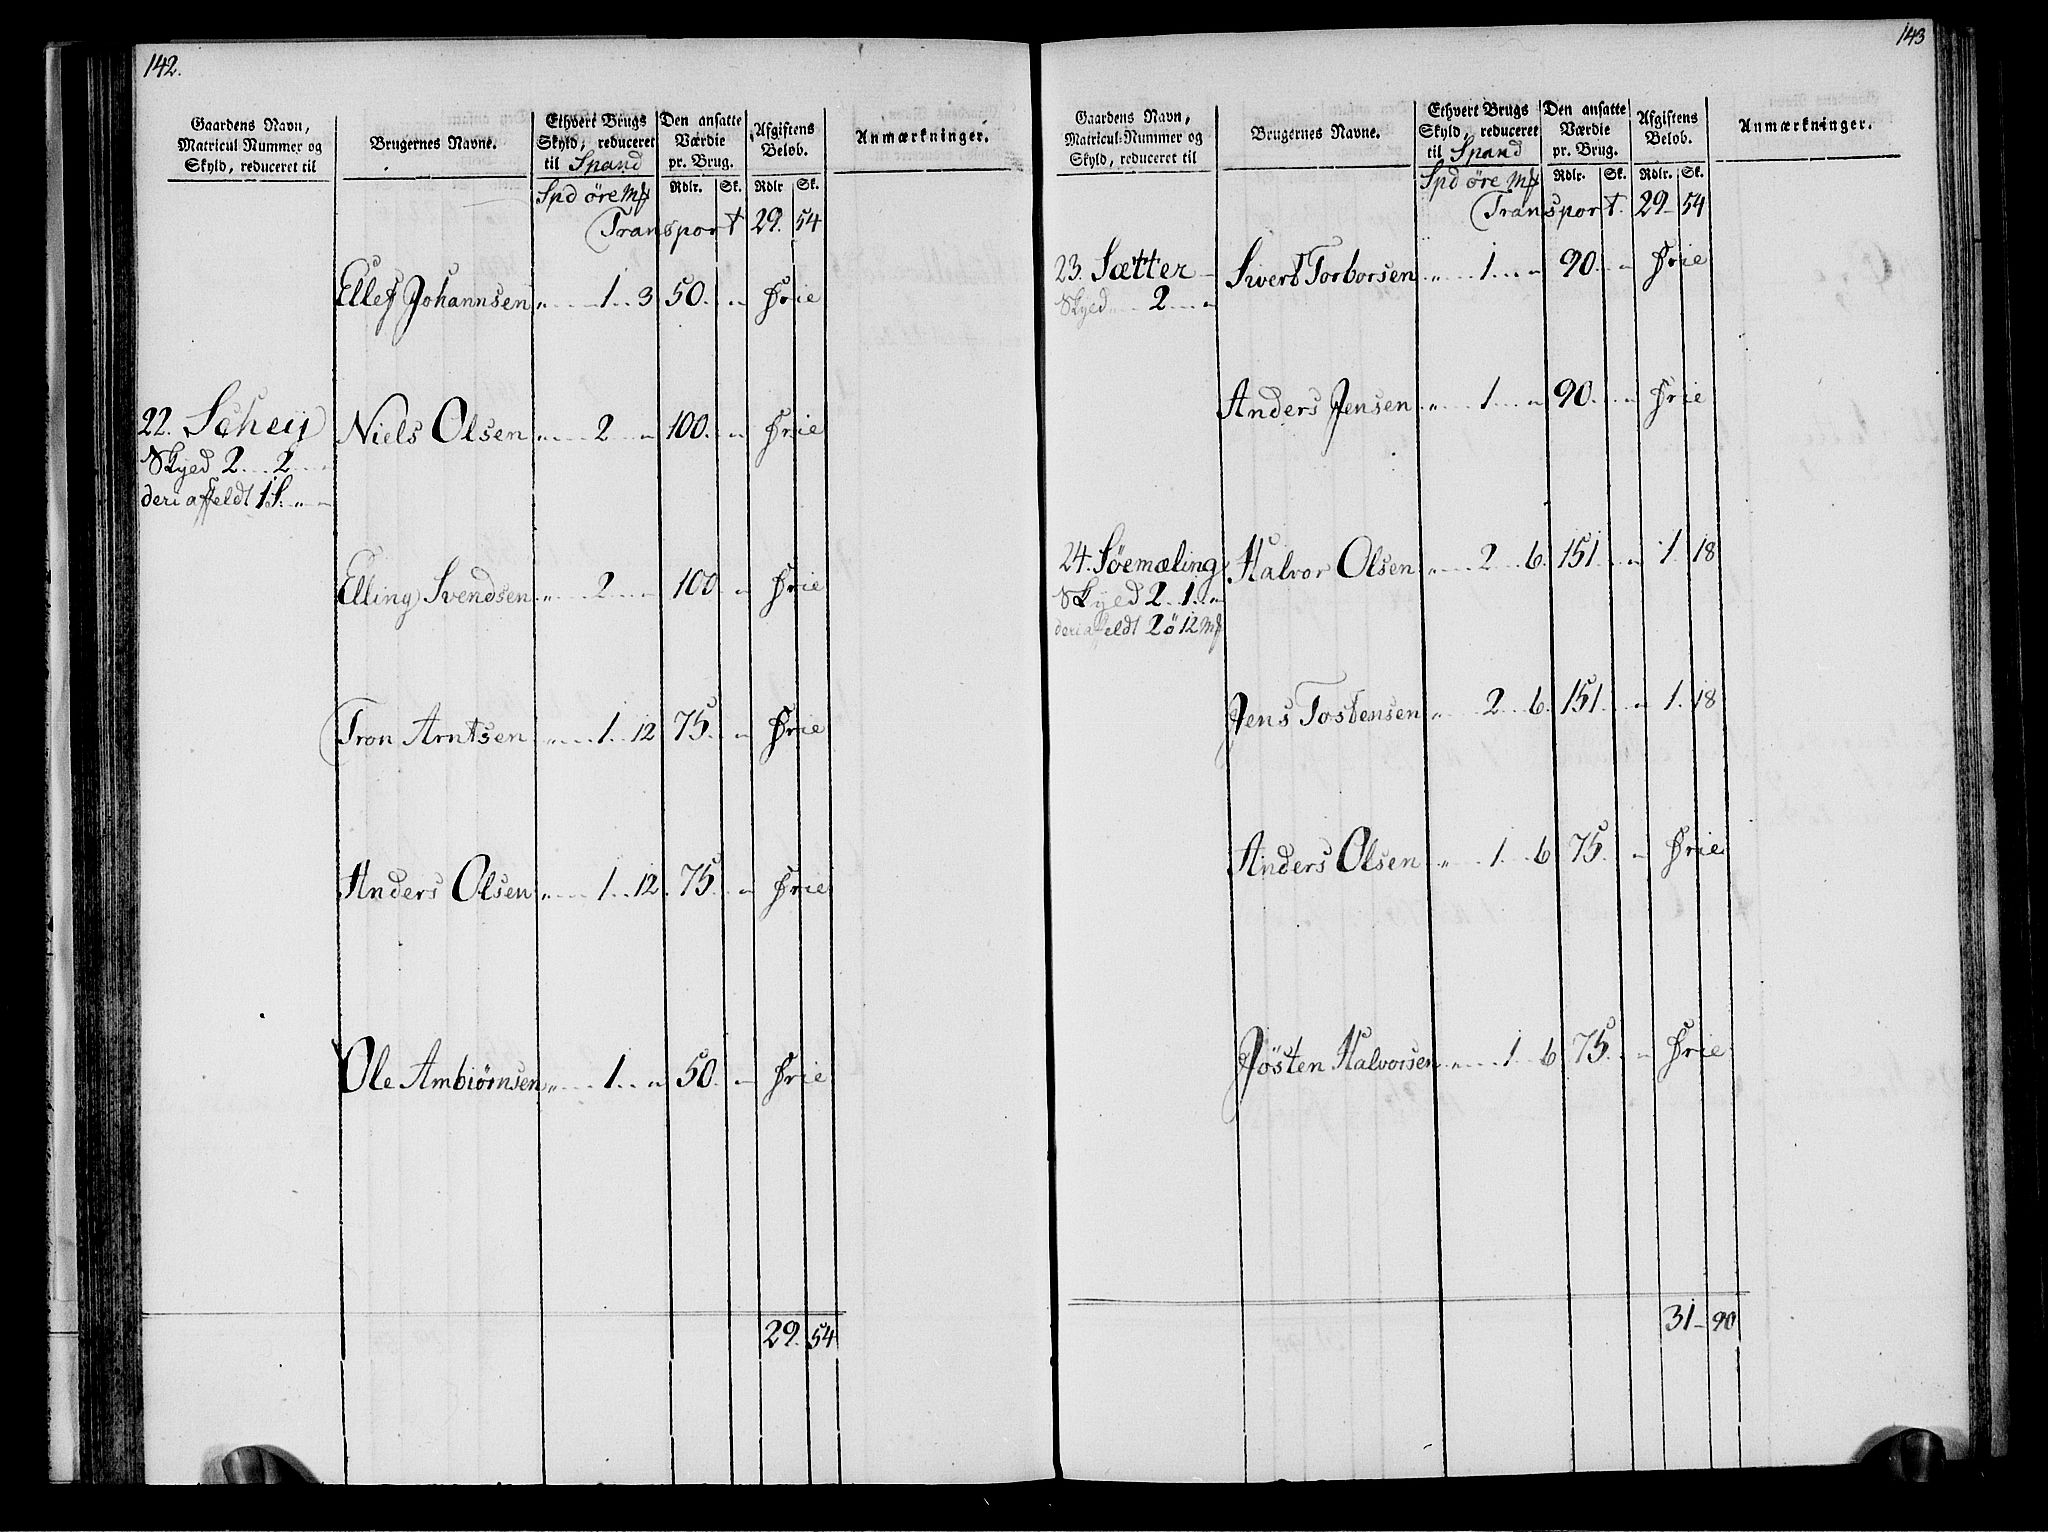 142.
Gaardens Navn, Matricul Nummer og Skyld, reduceret til
Brugernes Navne.
Ethvert Brugs Skyld, reduceret til Spand
Den ansatte Værdie pr. Brug.
Afgiftens Beløb.
Anmærkninger.
Spd öre Mk Rdlr. Sk. Rdlr Sk.
Transport 29. 54
Ellef Johannsen „ 1 .. 3 50. „ Frie
22. Scheij Niels Olsen „ 2 „ 100. „ Frie
Skyed 2 .. 2
deri affeldt 1 S. „ „
Elling Svendsen „ 2 „ 100 „ Frie
Tron Arntsen „ 1 .. 12 75. „ Frie
Anders Olsen „ 1 .. 12. 75. „ Frie
Ole Ambiörnsen „ 1 .. „ 50. „ Frie
29. 54
143
Gaardens Navn, Matricul-Nummer og Skyld, reduceret til
Brugernes Navne.
Ethvert Brugs Skyld, reduceret til Spand
Den ansatte Værdie pr. Brug.
Afgiftens Beløb.
Anmærkninger.
Spd öre Mk Rdlr. Sk. Rdlr. Sk.
Transport. 29 54
23. Sætter Sivert Torborsen „ 1 „ 90. „ Frie
Skyed 2 „
Anders Jensen „ 1 „ 90. „ Frie
24. Söemæling Halvor Olsen „ 2 .. 6. 151. „ 1. 18
Skyed 2 .. 1 .. „
deri affeldt 2 ö 12 Mk
Jens Tostensen „ 2 .. 6. 151. „ 1. 18
Anders Olsen „ 1 .. 6 75. „ Frie
Jösten Halvorsen „ 1 6 75. „ Frie
31 90